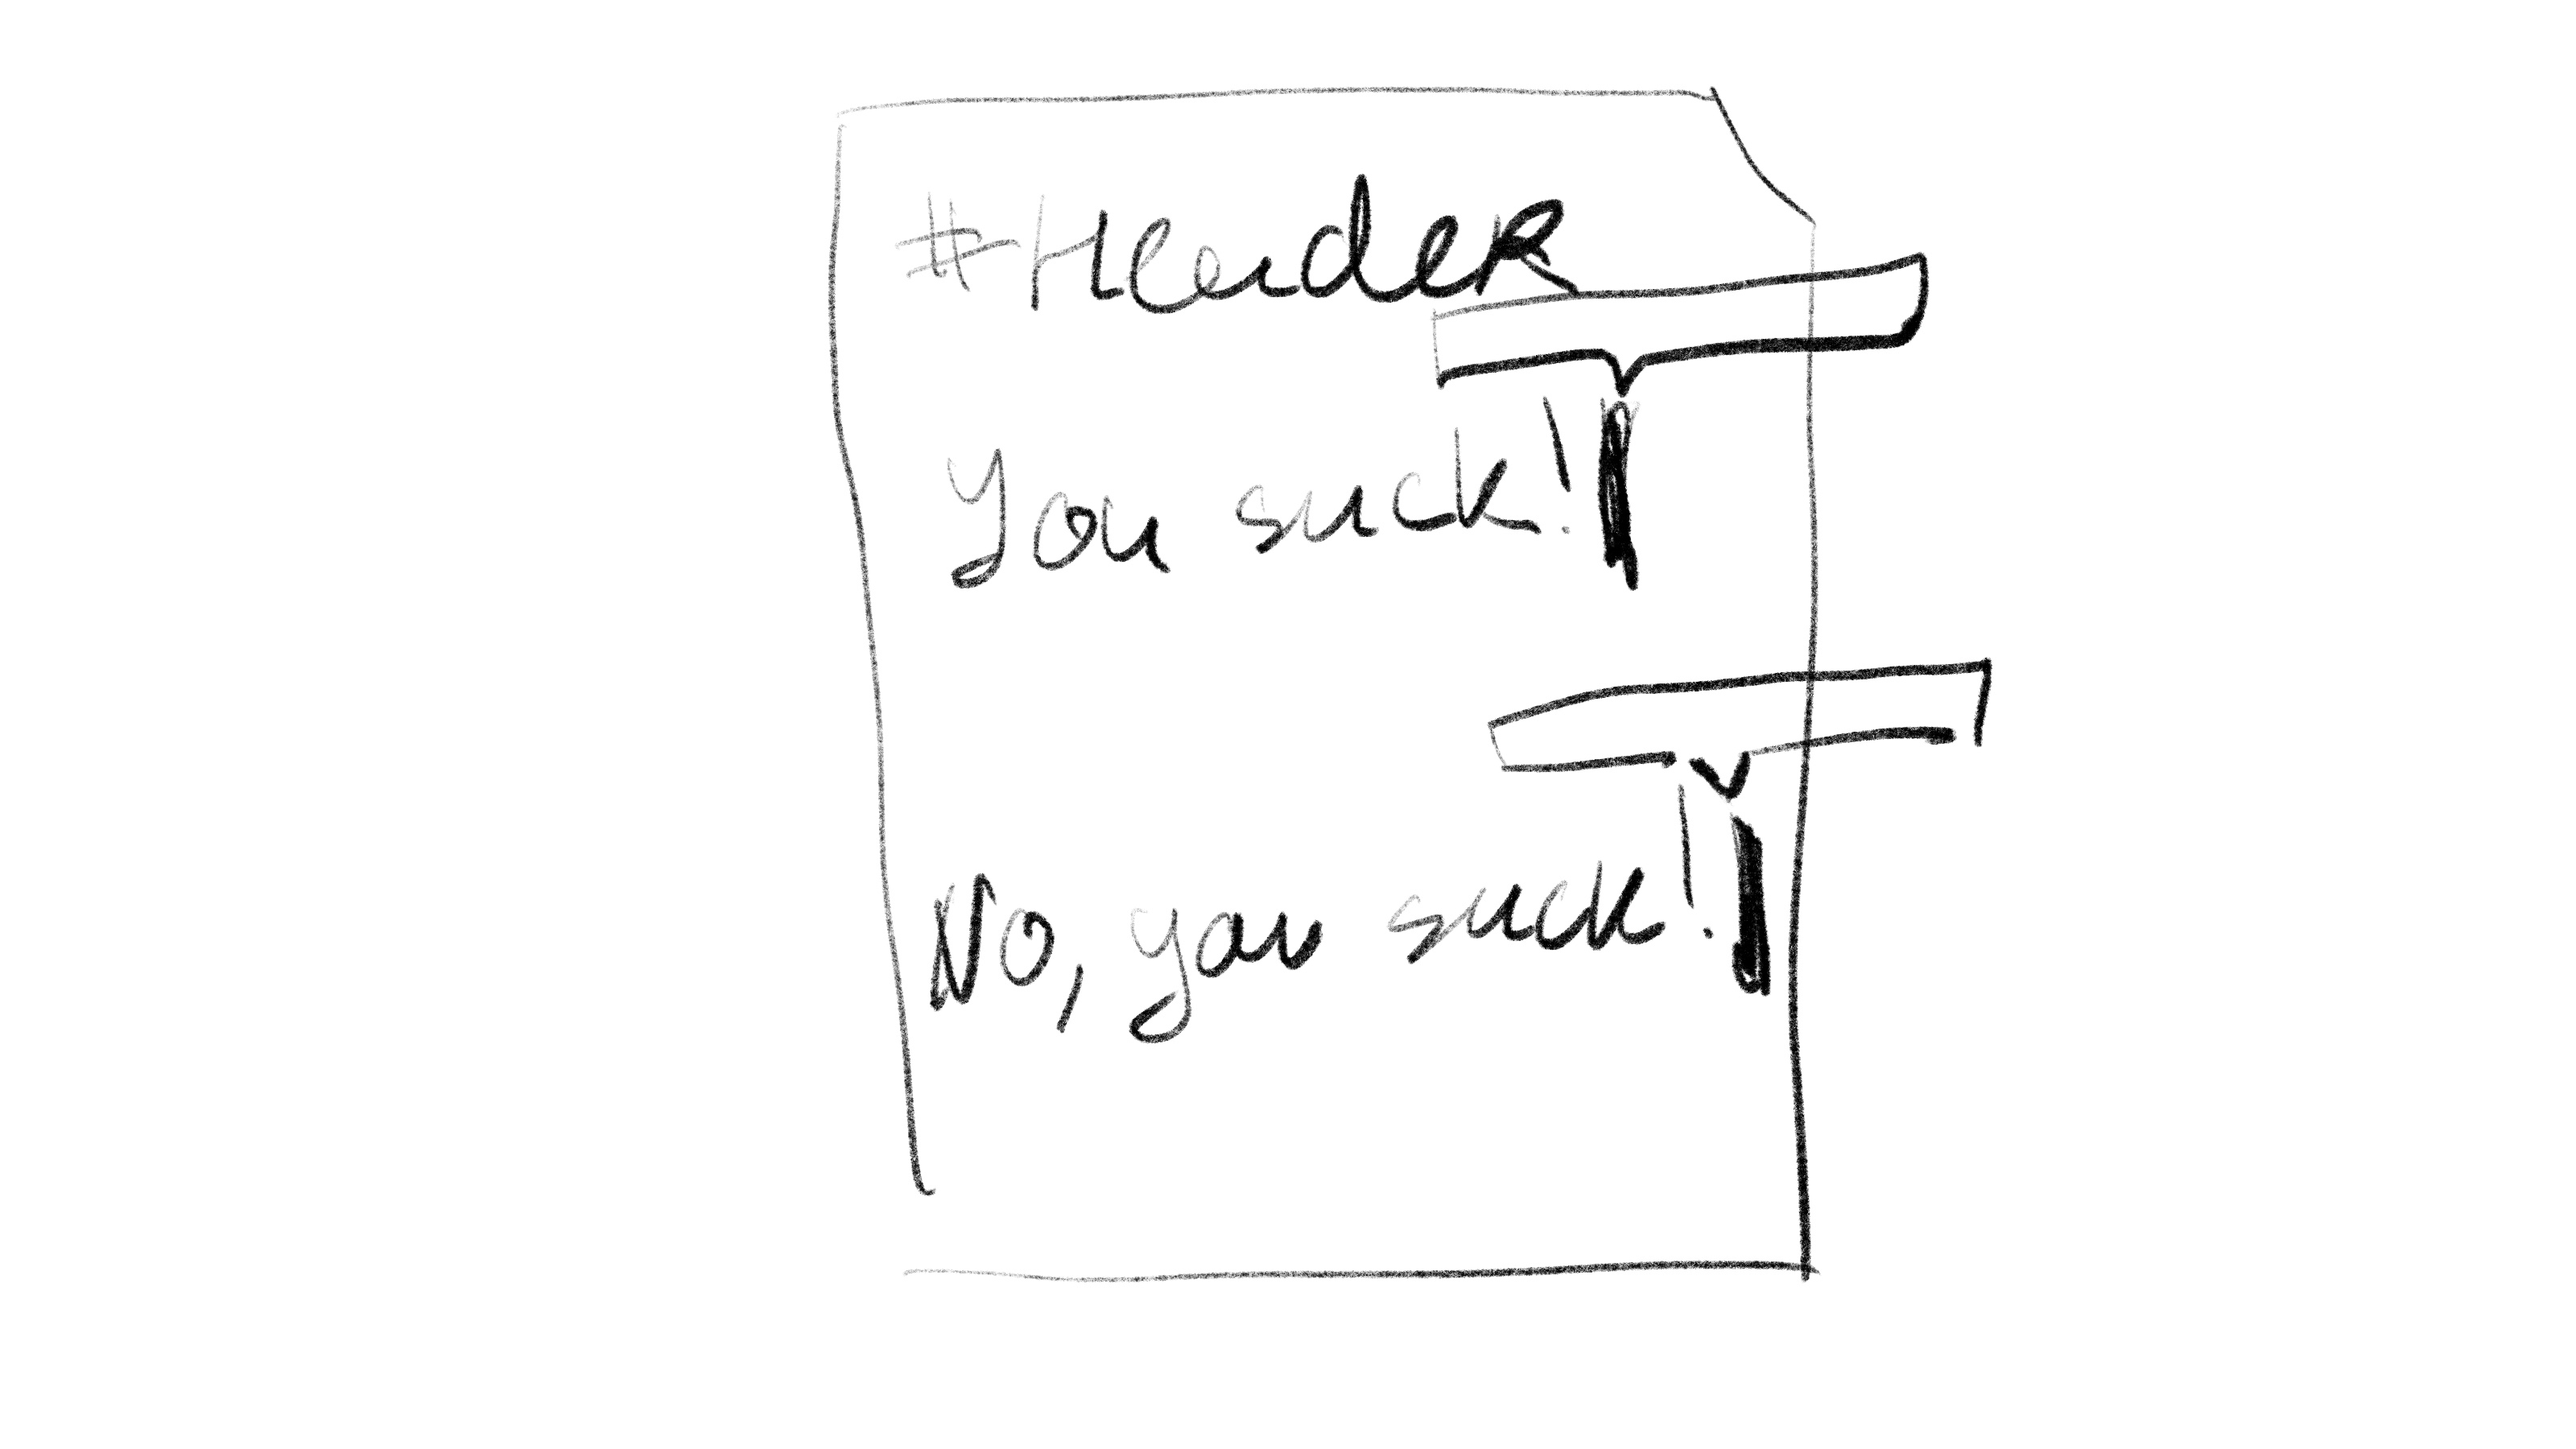 #Header
You suck!
No, you suck!